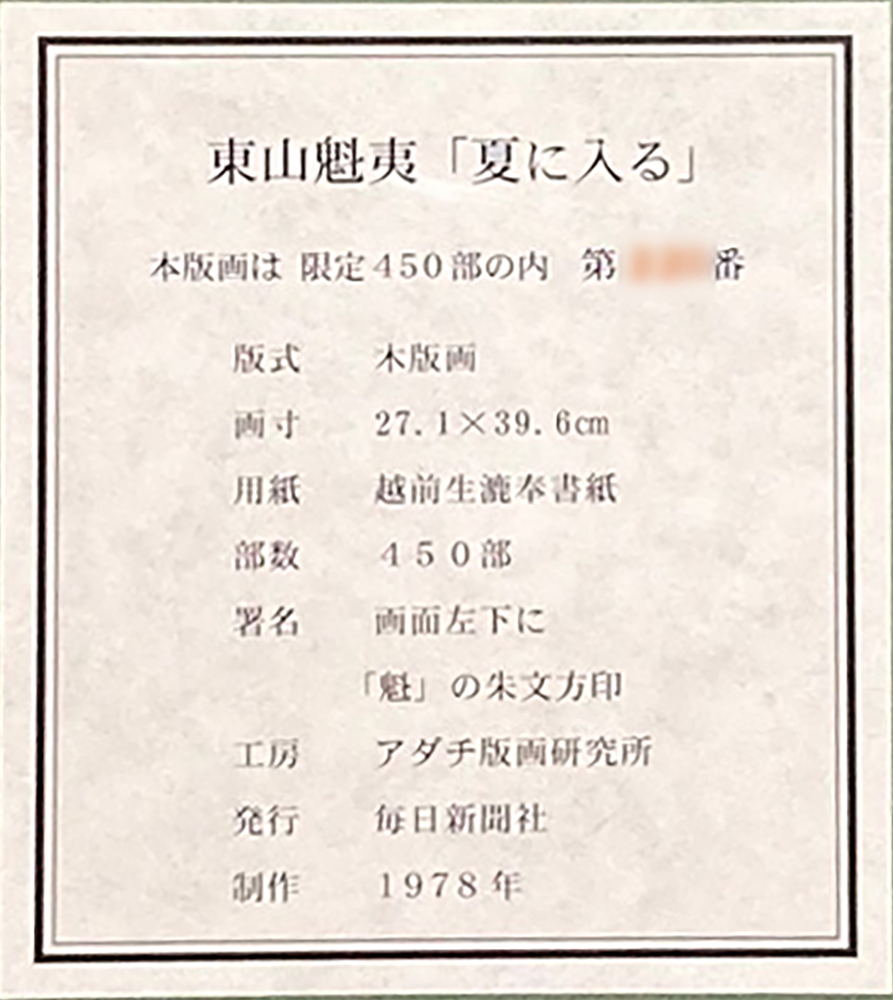 東山魁夷「夏に入る」
本版画は 限定450部の内 第 番
版式 木版画
画寸 27.1×39.6cm
用紙 越前生漉奉書紙
部数 450部
署名 画面左下に
「魁」の朱文方印
工房 アダチ版画研究所
発行 毎日新聞社
制作 1978年